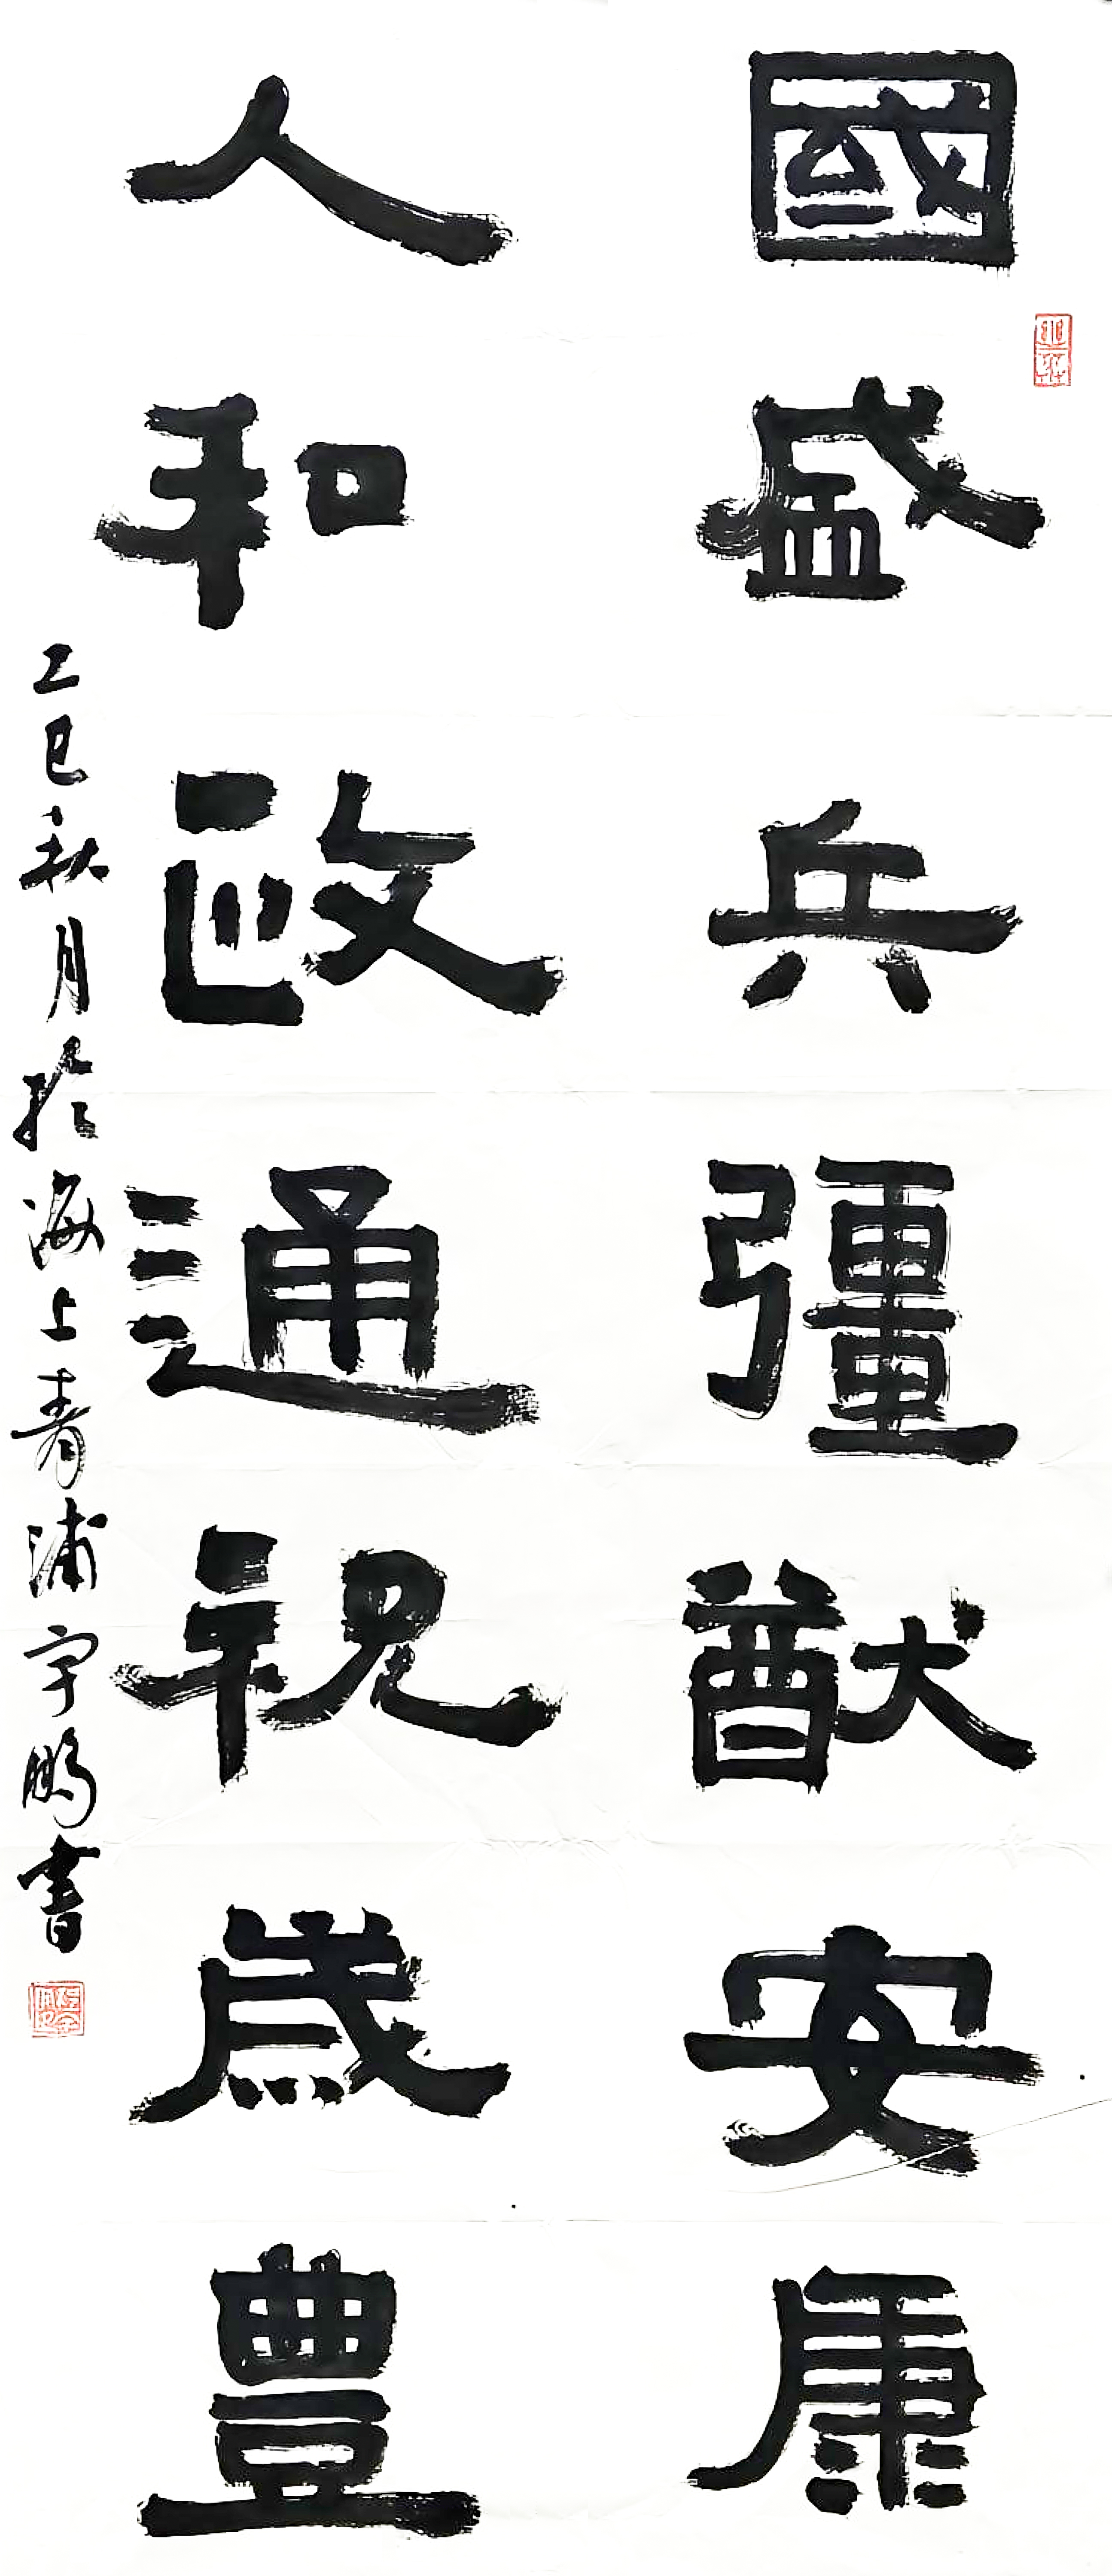 國盛兵彊猷安康
人和政通祝歲豐
乙巳秋月於海上青浦宇鵬書